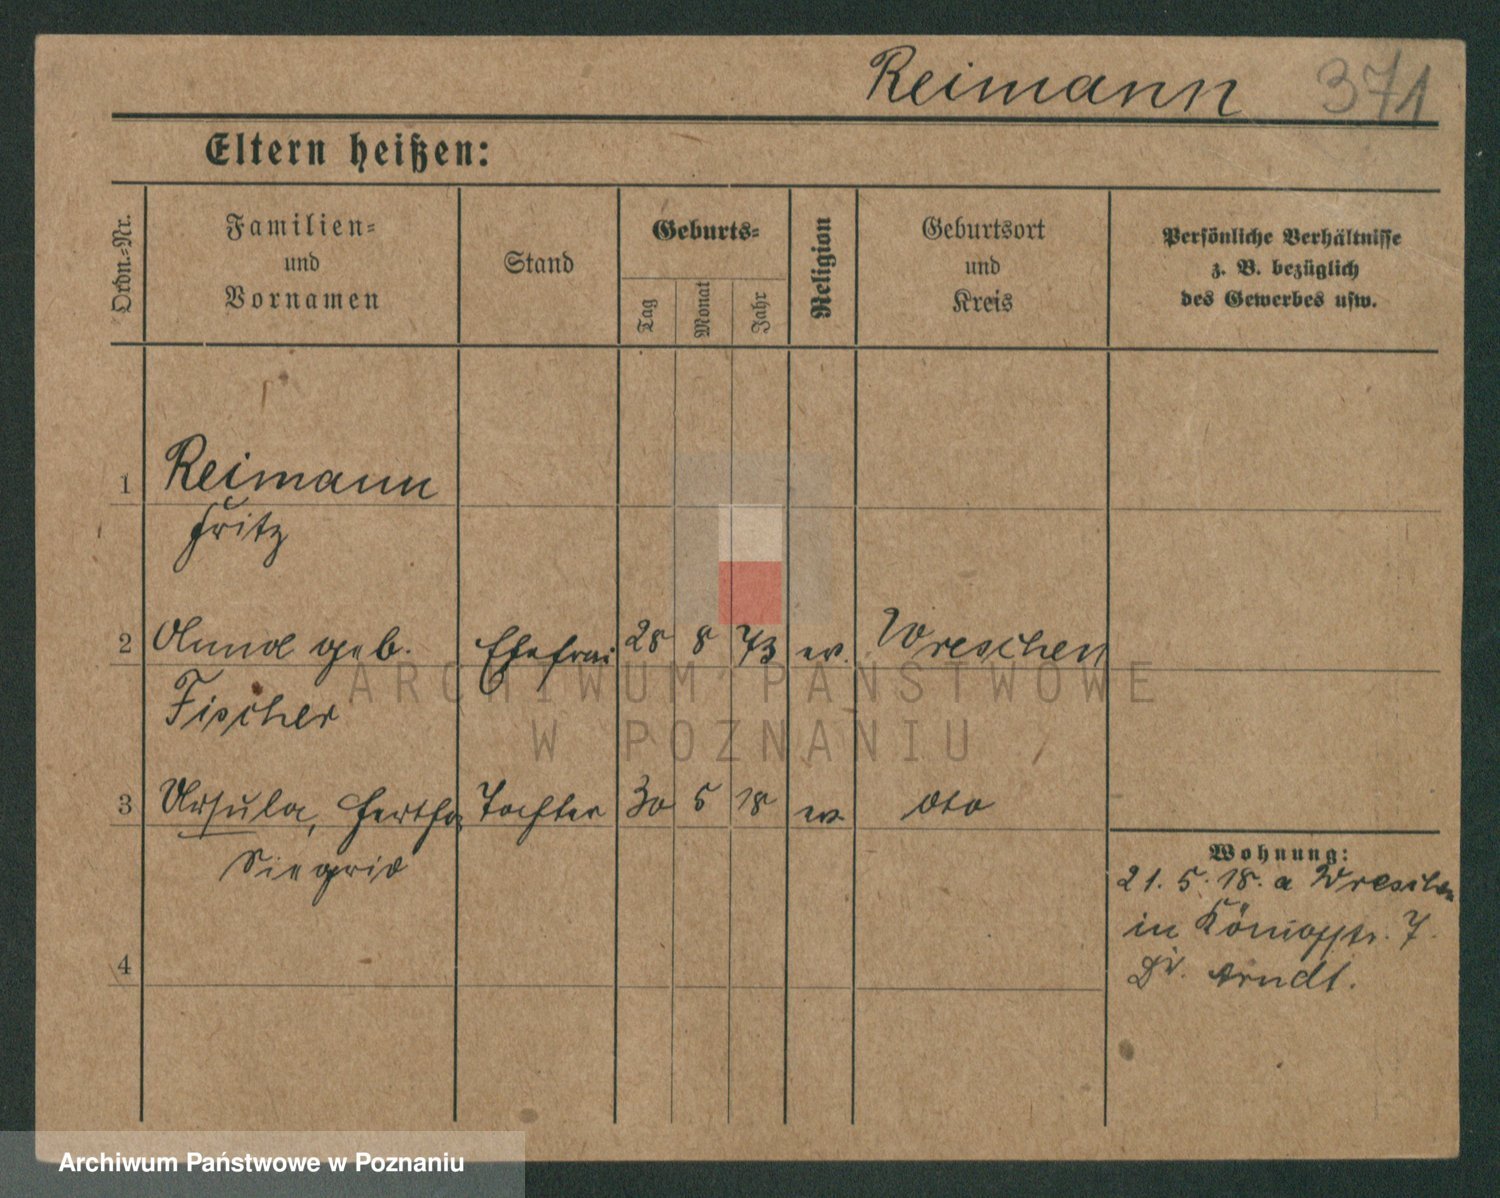 Reimann 371
Eltern heißen:
Ordn.-Nr.
Familien-
und
Vornamen
Stand
Geburts-
Tag
Monat
Jahr
Religion
Geburtsort
und
Kreis
Persönliche Verhältnisse
z. B. bezüglich
des Gewerbes usw.
1 Reimann
Fritz
2 geb. Ehefrau 28 8 73 ev. Wreschen
Fischer
3 Ursula, Hertha Tochter 30 5 18 ev. dto
Siegrid
4
Wohnung:
21. 5. 18. a Wreschen
in Königstr. 7.
Di. Arndt.
ARCHIWUM PAŃSTWOWE
W POZNANIU
Archiwum Państwowe w Poznaniu